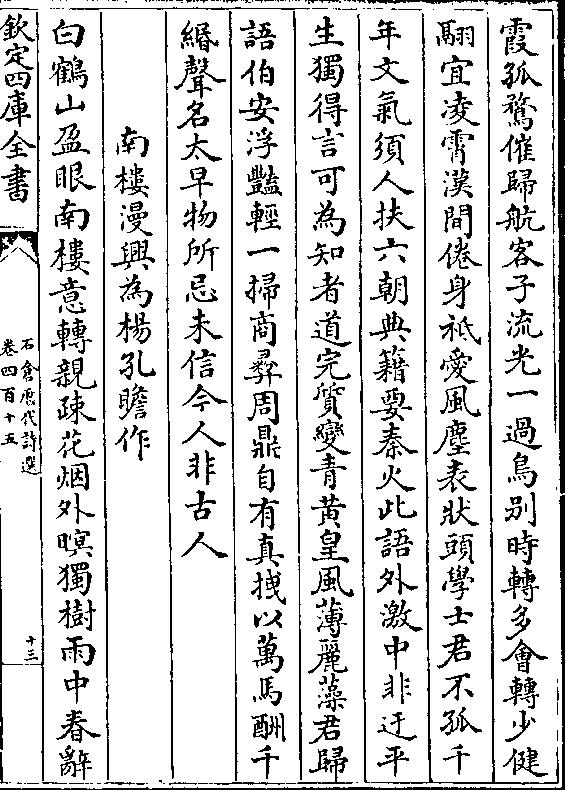 霞孤鶩催歸航客子流光一過鳥别時轉多會轉少健
翮宜凌霄漢間倦身祗愛風塵表狀頭學士君不孤千
年文氣須人扶六朝典籍要秦火此語外激中非迂平
生獨得言可為知者道完質變青黄皇風薄麗藻君歸
語伯安浮豔輕一掃商彛周鼎自有真拽以萬馬酬千
緡聲名太早物所忌未信今人非古人
南樓漫興為楊孔瞻作
白鶴山盈眼南樓意轉親疎花烟外暝獨樹雨中春辭
欽定四庫全書
石倉歷代詩選
卷四百十五
十三